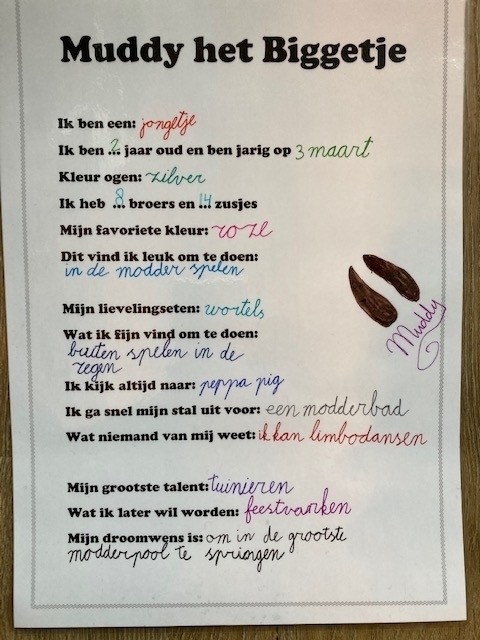 Muddy het Biggetje
Ik ben een: jongetje
Ik ben 2 jaar oud en ben jarig op 3 maart
Kleur ogen: zilver
Ik heb 8 broers en 14 zusjes
Mijn favoriete kleur: roze
Dit vind ik leuk om te doen:
in de modder spelen
Mijn lievelingseten: wortels
Wat ik fijn vind om te doen:
buiten spelen in de
regen
Ik kijk altijd naar: peppa pig
Ik ga snel mijn stal uit voor: een modderbad
Wat niemand van mij weet: ik kan limbodansen
Muddy
Mijn grootste talent: tuinieren
Wat ik later wil worden: feestvarken
Mijn droomwens is: om in de grootste
modderpool te springen